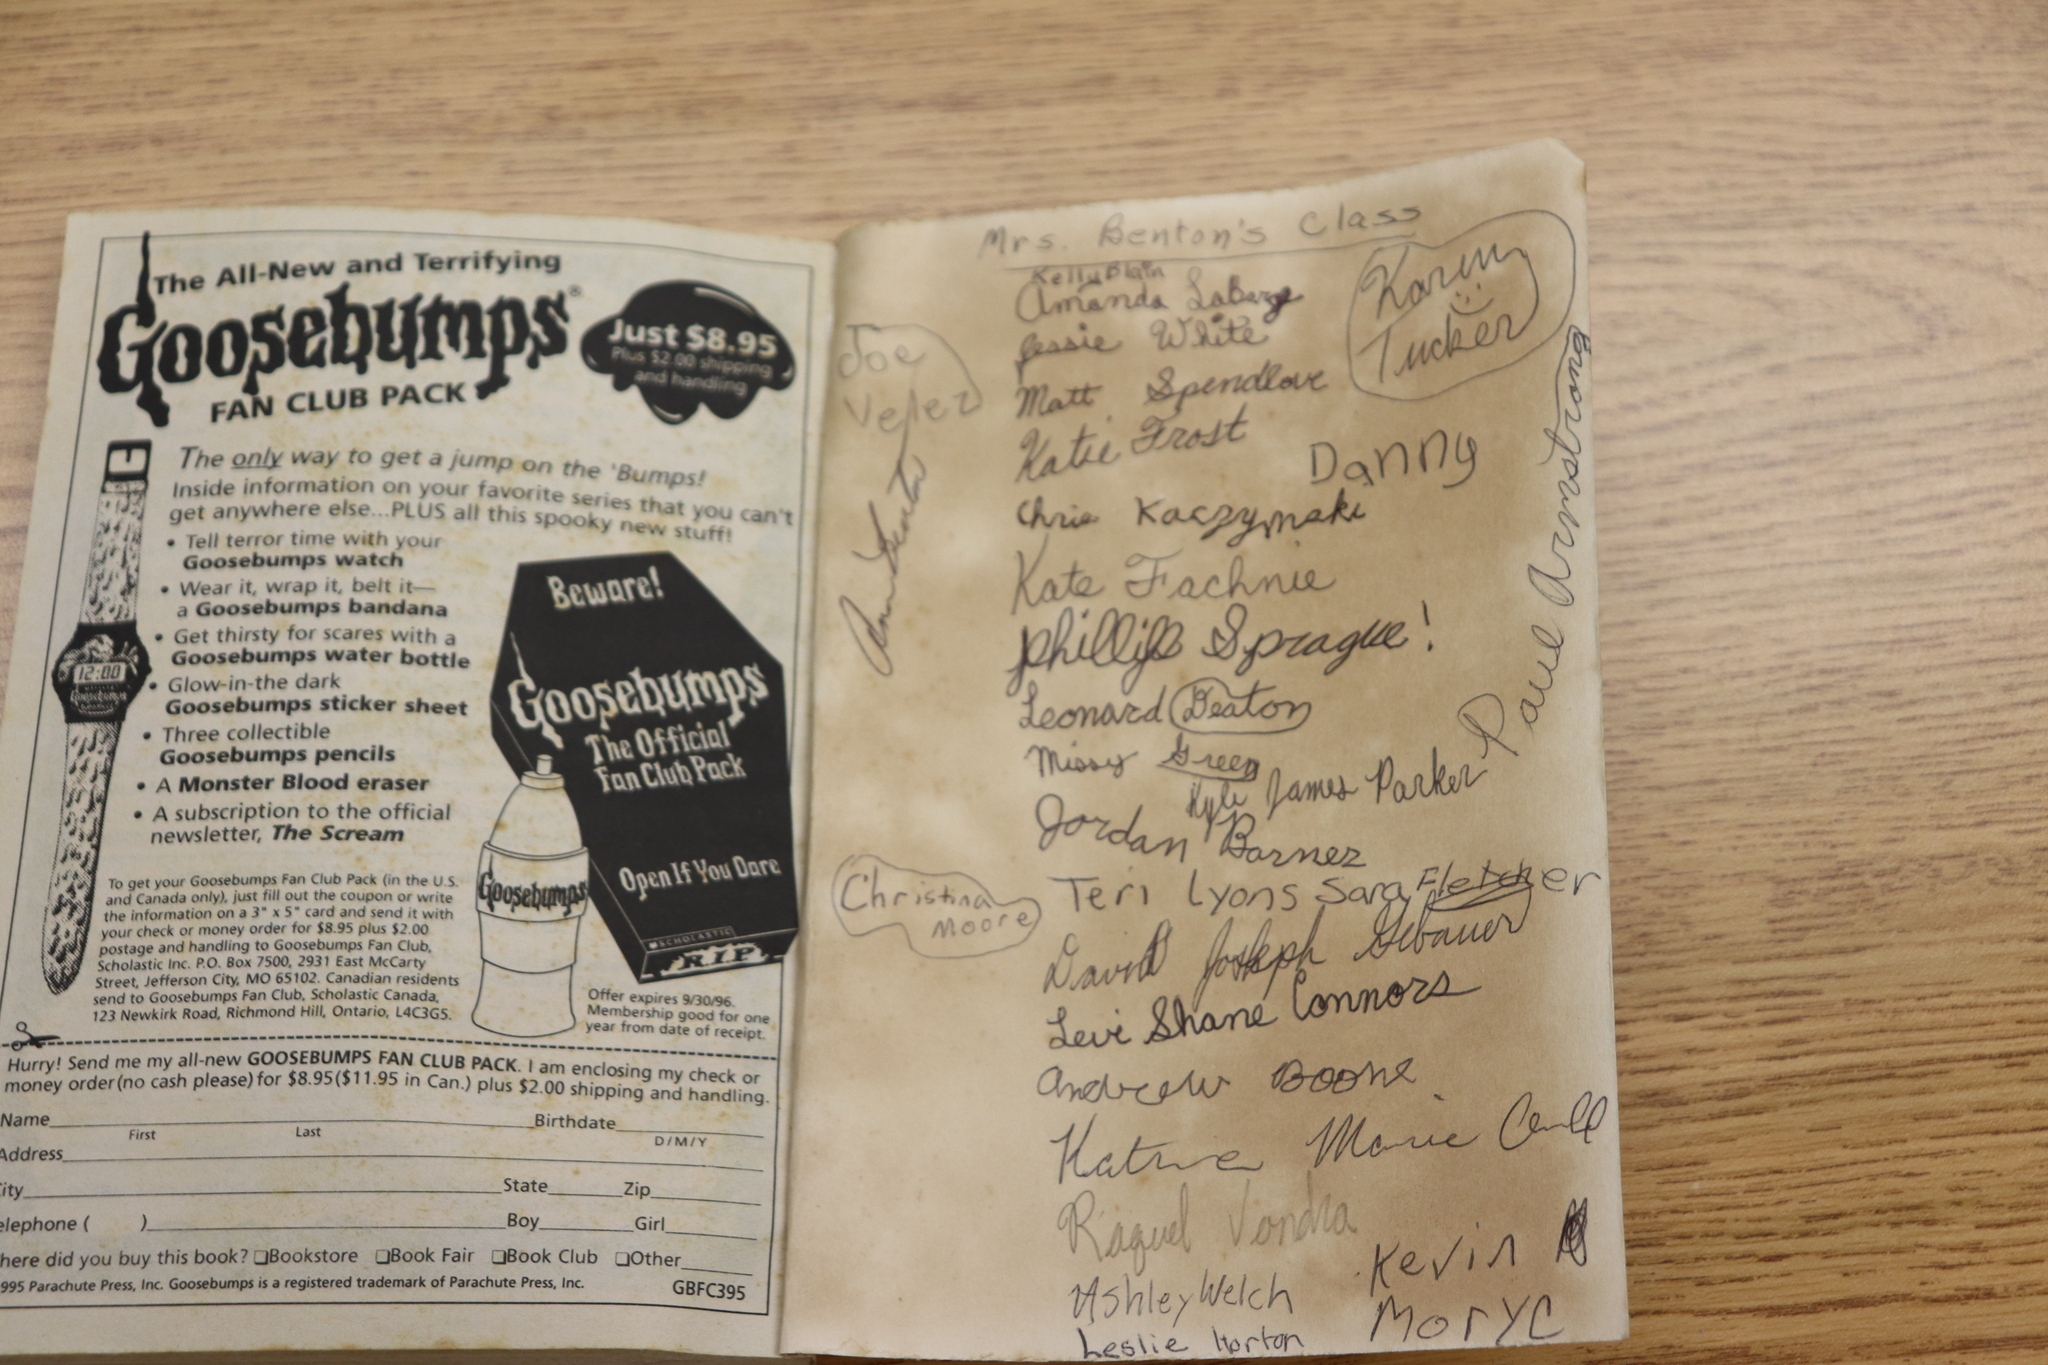 The All-New and Terrifying
Goosebumps®
FAN CLUB PACK
Just $8.95
Plus $2.00 shipping
and handling
The only way to get a jump on the 'Bumps!
Inside information on your favorite series that you can't
get anywhere else...PLUS all this spooky new stuff!
• Tell terror time with your
Goosebumps watch
• Wear it, wrap it, belt it—
a Goosebumps bandana
• Get thirsty for scares with a
Goosebumps water bottle
• Glow-in-the dark
Goosebumps sticker sheet
• Three collectible
Goosebumps pencils
• A Monster Blood eraser
• A subscription to the official
newsletter, The Scream
12:00
Goosebumps
Beware!
Goosebumps
The Official
Fan Club Pack
Open If You Dare
SCHOLASTIC
R.I.P
Goosebumps
To get your Goosebumps Fan Club Pack (in the U.S.
and Canada only), just fill out the coupon or write
the information on a 3" x 5" card and send it with
your check or money order for $8.95 plus $2.00
postage and handling to Goosebumps Fan Club,
Scholastic Inc. P.O. Box 7500, 2931 East McCarty
Street, Jefferson City, MO 65102. Canadian residents
send to Goosebumps Fan Club, Scholastic Canada,
123 Newkirk Road, Richmond Hill, Ontario, L4C3G5.
Offer expires 9/30/96.
Membership good for one
year from date of receipt.
Hurry! Send me my all-new GOOSEBUMPS FAN CLUB PACK. I am enclosing my check or
money order (no cash please) for $8.95 ($11.95 in Can.) plus $2.00 shipping and handling.
Name Birthdate
First Last D/M/Y
Address
ity State Zip
elephone ( ) Boy Girl
here did you buy this book? ❏Bookstore ❏Book Fair ❏Book Club ❏Other
995 Parachute Press, Inc. Goosebumps is a registered trademark of Parachute Press, Inc. GBFC395
Mrs. Benton's Class
Kelly Blain
Amanda LaBarge
Jessie White
Karin
Tucker
Joe
Velez
Matt Spendlove
Katie Frost
Danny
Chris Kaczynski
Kate Fachnie
Phillip Sprague!
Paul Armstrong
Leonard Beaton
Missy Green
Kyle James Parker
Jordan Barnez
Christina
Moore
Teri Lyons Sara Fletcher
David Joseph Gebauer
Levi Shane Connors
Andrew Boone
Marie
Raquel Vondra
Kevin
Ashley Welch
Moryc
Leslie Horton